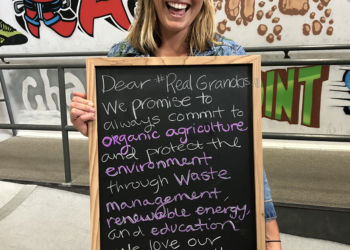 Dear #Real Grandads
We promise to
always commit to
organic agriculture
and protect the
environment
through Waste
management,
renewable energy,
and education
We love our